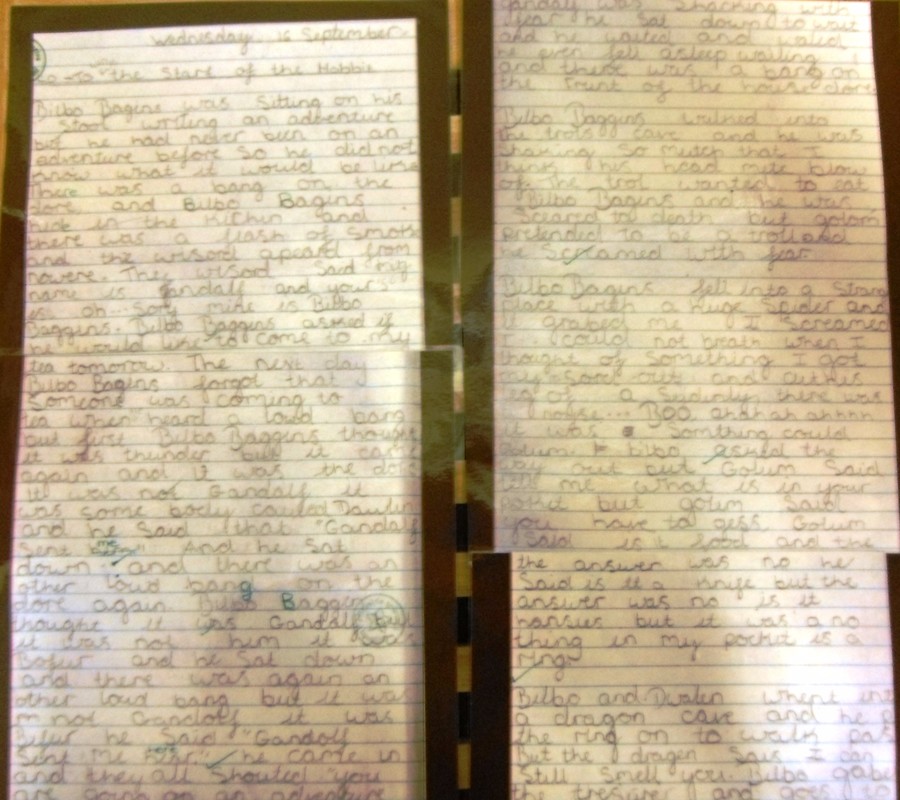 Wednesday 16 September
the Start of the Hobbit
Bilbo Bagins was Sitting on his
Stool writing an adventure
but he had never been on an
adventure before So he did not
know what it would be like
There was a bang on the
dore and Bilbo Bagins
hide in the Kitchin and
there was a flash of Smoke
and the wisord apeard from
nowere. The wisord Said "my
name is Gandalf and your's
is oh... Sory mine is Bilbo
Baggins. Bilbo Baggins asked if
he would like to come to my
tea tomorrow. The next day
Bilbo Bagins forgot that
Someone was coming to
tea when heard a loud bang
but first Bilbo Baggins thought
it was thunder but it came
again and it was the dore
it was not Gandalf it
was some body called Dwalin
and he Said that "Gandalf
Sent me" And he Sat
down and there was an
other loud bang on the
dore again Bilbo Baggins
thought it was Gandalf but
it was not him it was
Bofur and he Sat down
and there was again an
other loud bang but it was
not Gandolf it was
Bifur he Said "Gandolf
Sent me here" he came in
and they all Shouted "you
are going on an adventure
gandalf was Sharking with
fear he Sat down to wait
and he waited and waited
he even fell asleep waiting
and there was a bang on
the front of the house dore
Bilbo Baggins walked into
the trols cave and he was
Shaking So mutch that I
think his head mite blow
of. The trol wanted to eat
Bilbo Bagins and he was
Scared to death but golom
pretended to be a troll and
he Screamed with fear
Bilbo Bagins fell into a Strang
place with a huge Spider and
it grabed me I Screamed
I could not brath when I
thought of Something I got
my Sord out and cut his
leg of a Sudinly there was
a noise... BOO ahahah ahhhh
it was Somthing could
Golum. bilbo asked the
way out but Golum Said
tell me what is in your
poket but golum Said
you have to gess. Golum
Said is it food and the
the answer was no he
Said is it a Knife but the
answer was no is it
hansies but it was a no
thing in my pocket is a
ring.
Bilbo and Dwalen whent into
a dragon cave and he p
the ring on to walk pas
But the dragen Sais I can
Still Smell you. Bilbo gabe
the tresurer and goes to